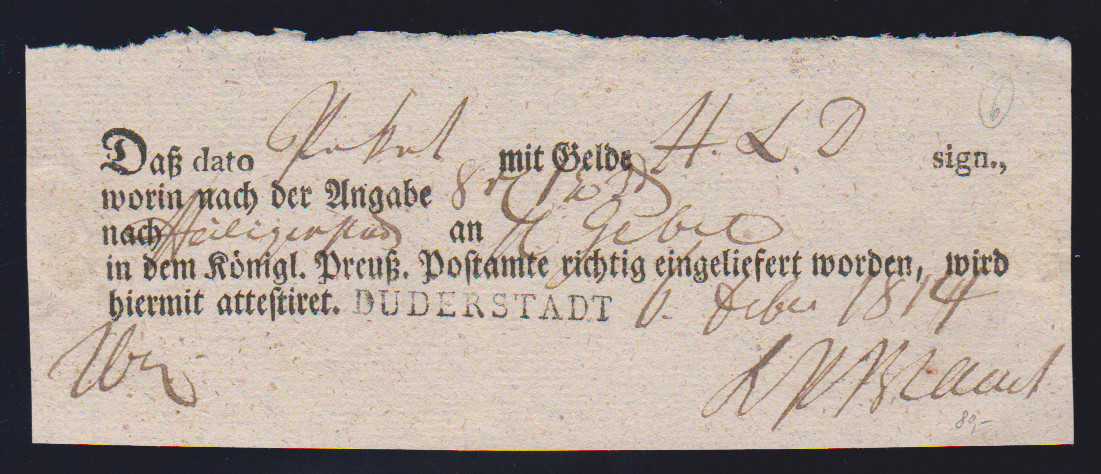 6
Daß dato Pakat mit Gelde H. L D sign.,
worin nach der Angabe 8
nach Heiligenstadt an Gebet
in dem Königl. Preuß. Postamte richtig eingeliefert worden, wird
hiermit attestiret. DUDERSTADT 6. Febr 1814
89,-